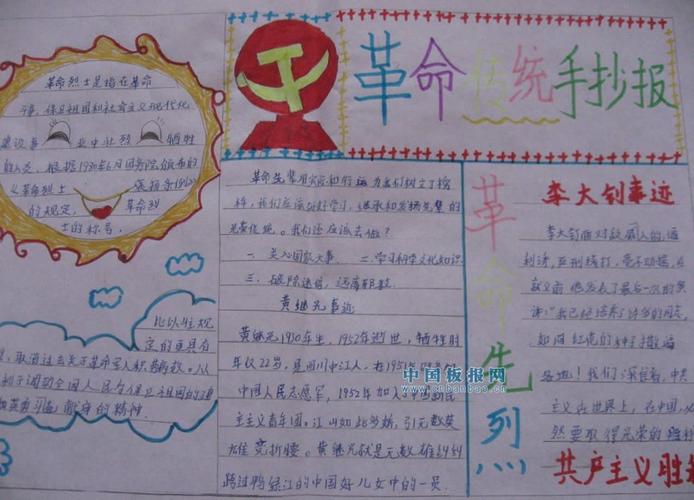 革命传统手抄报
革命烈士是指在革命
争，保卫祖国和社会主义现代化
建设事业中壮烈牺牲
的人员，根据1980年6月国务院颁布的
革命烈士
的规定，革命烈
士的称号。
比以往规
定的更具有
取消过去关于革命军人
利于调动全国人民今保卫祖国的
献身的精神。
革命先辈用实际和行动为我们树立了榜
样，我们应该好好学习，继承和发扬先辈的
光荣传统。我们还应该去做？
一. 关心国家大事. 二. 学习科学文化知识.
三. 破除迷信，远离邪教.
黄继光事迹
黄继光1930年生，1952年逝世，牺牲时
年仅22岁，是四川中江人，在1951年
中国人民志愿军，1952年加入
主主义青年团。江山如此多娇，引无数英
雄竞折腰。黄继光就是无数雄纠纠
跨过鸭绿江的中国好儿女中的一员.
中国板报网
www.cnbanbao.cn
革命先烈
李大钊事迹
李大钊面对敌
利诱，严刑拷打，毫不动摇，
就义前他发表了最后一次的演
讲“
如同红花的种子撒遍
各地！我们深信着，中共
主义在世界上，在中国，必
然要取得光荣的
共产主义胜